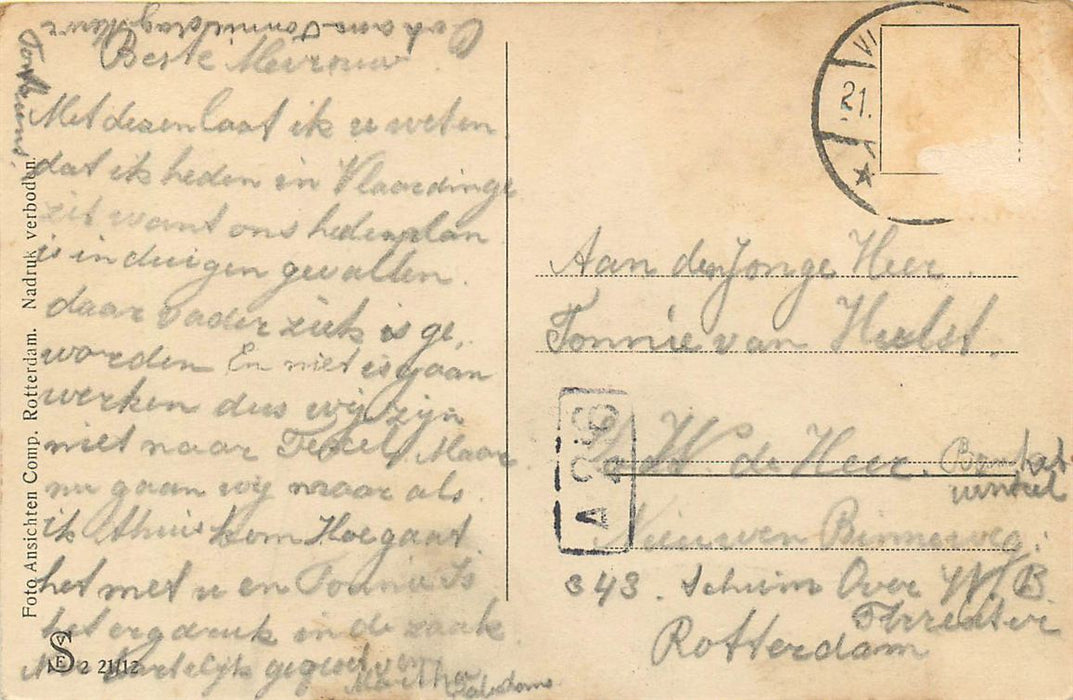 Beste Mevrouw
Met dezen laat ik u weten
dat ik heden in Vlaardinge
zit want ons heden plan
is in duigen gevallen
daar vader ziek is ge,
worden En niet is gaan
werken dus wij zijn
niet naar Texel, Maar
nu gaan wij naar als
ik thuis kom Hoe gaat
het met u en Tonnie Is
het erg druk in de zaak
Hartelijk gegroet van
Martha
Foto Ansichten Comp. Rotterdam. Nadruk verboden.
2 21112
VI
21.
Aan den Jonge Heer
Tonnie van Hulst.
W. de Heer.
winkel
Nieuwen Binneweg.
343. Schuin Over W. B.
Rotterdam